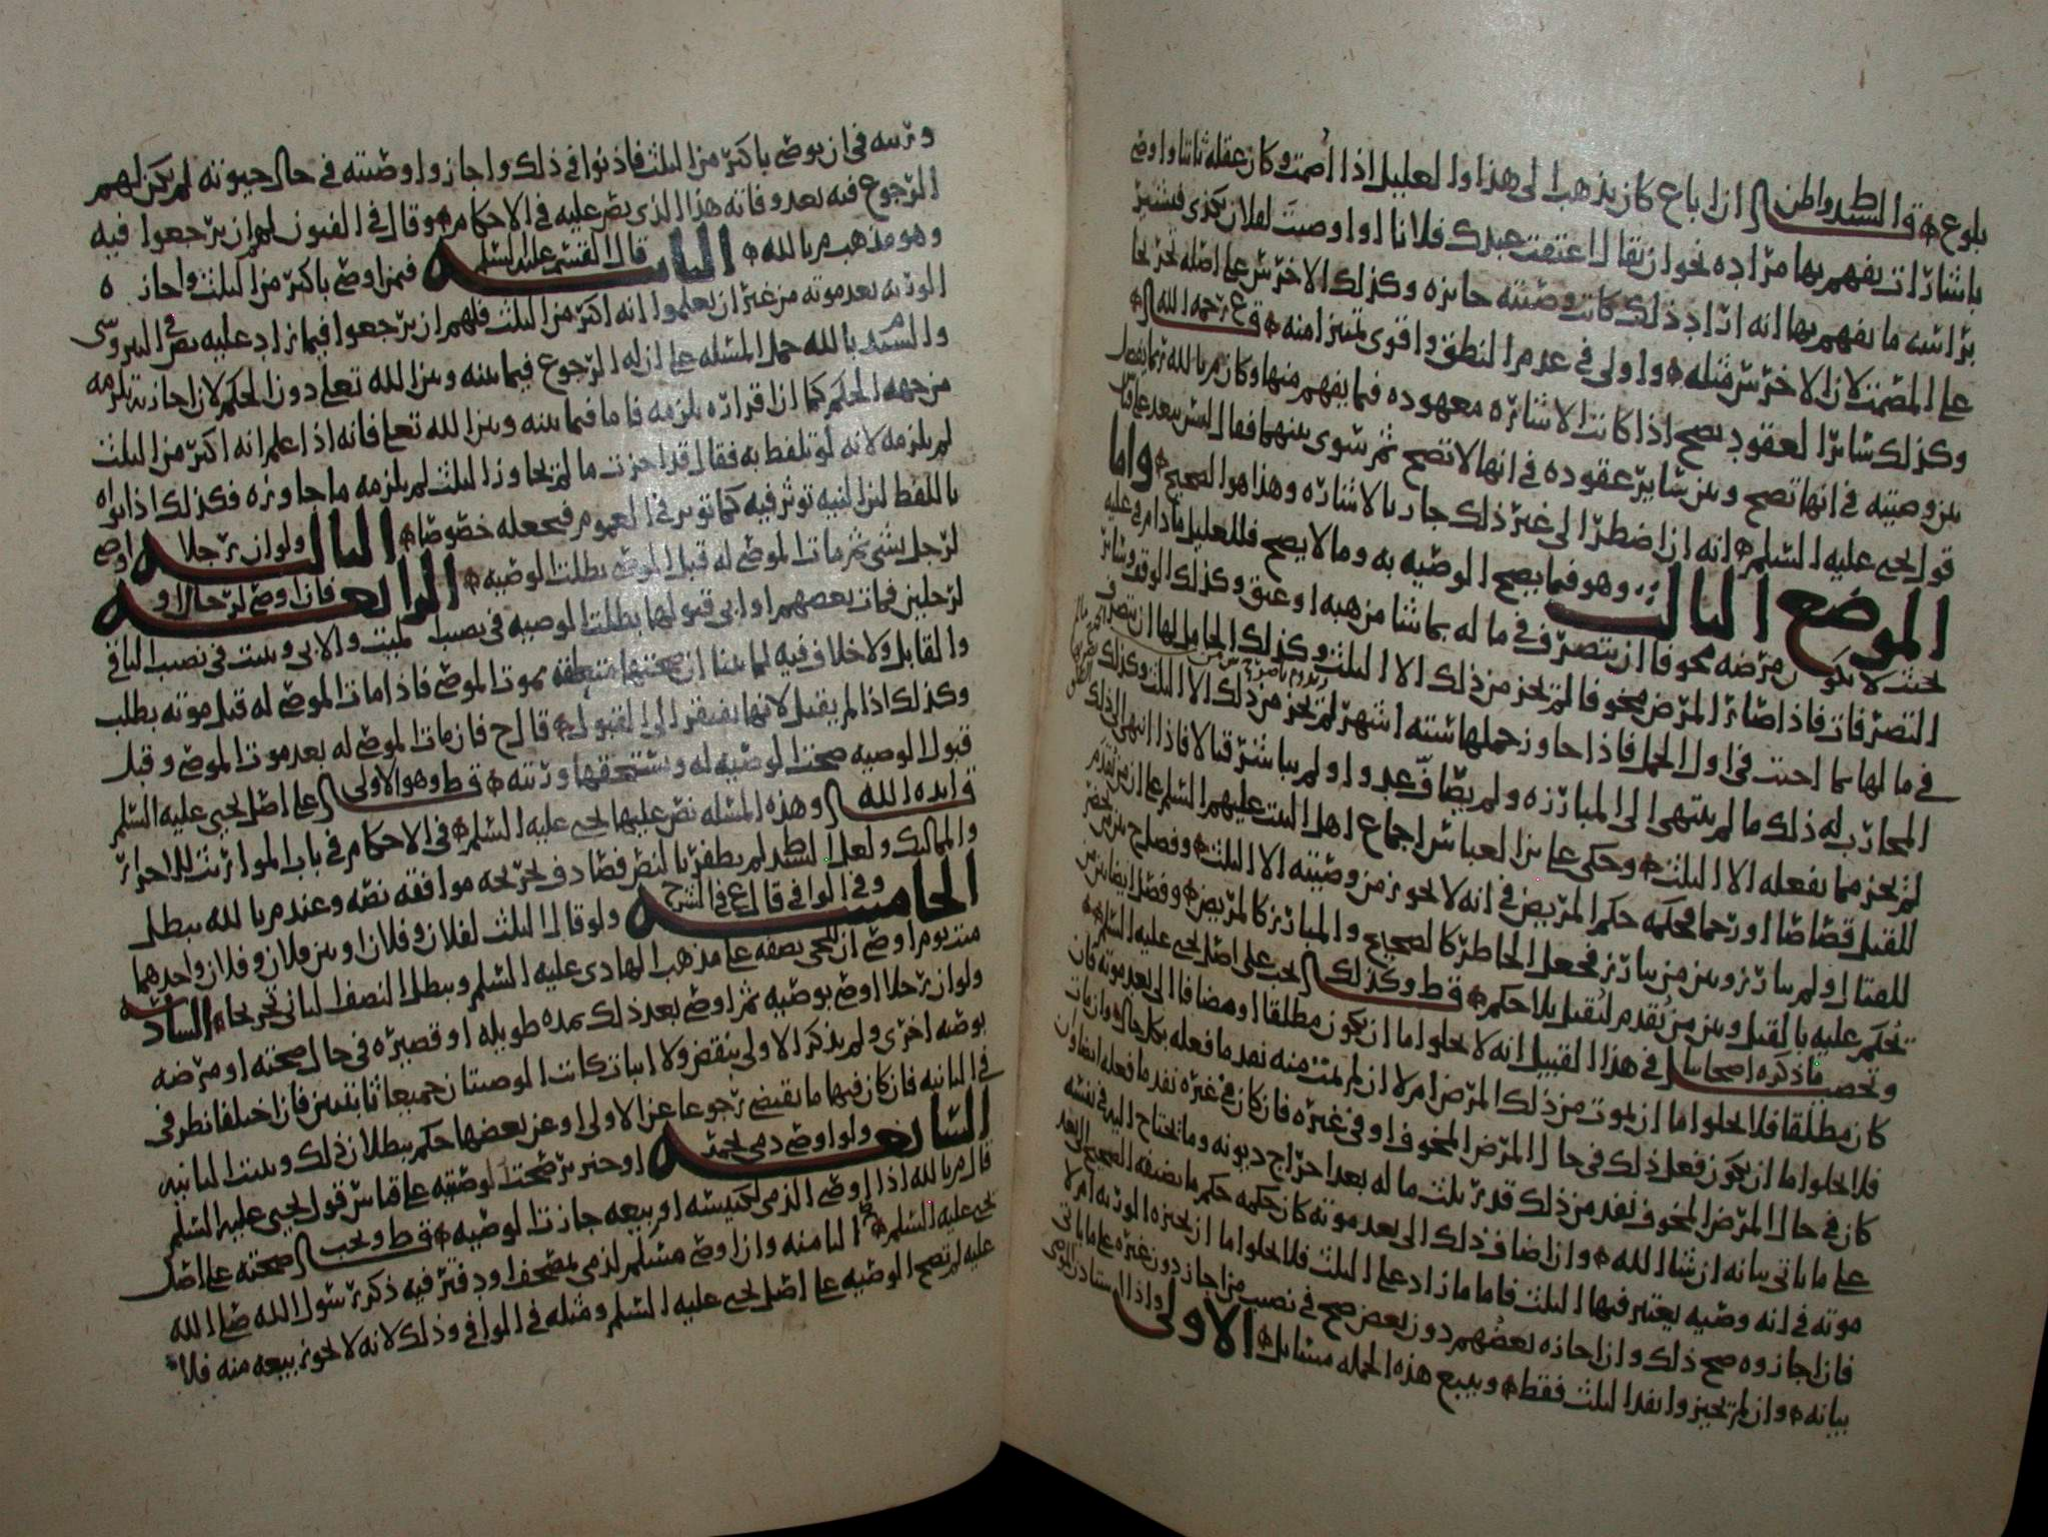 بلوغ قال السيد وأظن ان ابا ع كان يذهب الى هذا والعليل اذا أصمت وكان عقله ثابتا واوصى
باشارات يفهم بها مراده نحو ان يقال اعتقت عبدك فلانا او اوصيت لفلان بكذى فيشير
براسه ما يفهم بها انه اراد ذلك كانت وصيته جايزه وكذلك الاخرس على اصله تخريجا
على المصمت لان الاخرس مثله واولى في عدم النطق واقوى تمييزا منه ق ع رحمه الله
وكذلك سائر العقود يصح اذا كانت الاشاره معهوده فيما يفهم منها وكان م بالله ربما يفصل
بين وصيته في انها تصح وبين سائر عقوده في انها لا تصح ثم سوى بينهما فقال ليس يبعد على
قول يحيى عليه السلم انه ان اضطر الى غير ذلك جاز بالاشاره وهذا هو الصحيح واما
الموضع الثالث وهو فيما يصح الوصيه به وما لا يصح فللعليل ما دام في علته
بحيث لا يكون مرضه مخوفا ان يتصرف في ما له بما شا من هبه او عتق وكذلك الوقف وسائر
التصرفات فاذا صار المرض مخوفا لم يجز من ذلك الا الثلث وكذلك الحامل لها ان تتصرف
في ما لها بما احبت في اول الحمل فاذا جاوز حملها ستة اشهر لم يجز من ذلك الا الثلث وكذلك
المحارب له ذلك ما لم ينتهى الى المبارزه ولم يصاف عدوا ولم يباشر قتالا فاذا انتهى الى ذلك
لم يجز مما يفعله الا الثلث وحكى على بن العباس اجماع اهل البيت عليهم السلم على ان من تقدم
للقتل قصاصا او رجما فحكمه حكم المريض في انه لا يجوز من وصيته الا الثلث وفصل ح بين من حضر
للقتال ولم يبارز وبين من بارز فجعل الحاضر كالصحيح والمبارز كالمريض وفصل ايضا بين من
تحكم عليه بالقتل وبين من يقدم ليقتل بلا حكم ق ط وكذلك يجب على اصل يحيى عليه السلم
وتحصيل ما ذكره اصحابنا في هذا القبيل انه لا يخلوا اما ان يكون مطلقا او مضافا الى بعد موته فان
كان مطلقا فلا يخلوا اما ان يموت من ذلك المرض ام لا ان لم يمت منه نفذ ما فعله بكل حال وان مات
فلا يخلوا اما ان يكون فعل ذلك في حال المرض المخوف او في غيره فان كان في غيره نفذ ما فعله ايضا وان
كان في حال المرض المخوف نفذ من ذلك قدر ثلث ما له بعد اخراج ديونه وما يحتاج اليه في نفسه
على ما ياتي بيانه ان شا الله وان اضاف ذلك الى بعد موته كان حكمه حكم ما يضيفه الصحيح الى بعد
موته في انه وصيه يعتبر فيها الثلث فاما ما زاد على الثلث فلا يخلوا اما ان يجيزه الورثه ام لا
فان اجازوه صح ذلك وان اجازه بعضهم دون بعض صح في نصيب من اجاز دون غيره على ما ياتي
بيانه وان لم يجيزوا نفذ الثلث فقط ويتبع هذه الجمله مسايل الاولى واذا استاذن الموصي
ورثته في ان يوصي باكثر من الثلث فاذنوا في ذلك واجازوا وصيته في حال حيوته لم يكن لهم
الرجوع فيه بعد وفاته هذا الذي نص عليه في الاحكام وقال في الفنون لهم ان يرجعوا فيه
وهو مذهب م بالله الثانيه قال القسم عليه السلم فيمن اوصى باكثر من الثلث واجازه
الورثه بعد موته من غير ان يعلموا انه اكثر من الثلث فلهم ان يرجعوا فيما زاد عليه نص في النيروسي
والمويد بالله حمل المسئله على ان له الرجوع فيما بينه وبين الله تعلى دون الحكم لان اجازته تلزمه
من جهه الحكم كما ان اقراره يلزمه فاما فيما بينه وبين الله تعلى فانه اذا علم انه اكثر من الثلث
لم يلزمه لانه لو تلفظ به فقال قد اجزت ما لم يجاوز الثلث لم يلزمه ما جاوزه فكذلك اذا نواه
باللفظ لان النيه توثر فيه كما توثر في العموم فيجعله خصوصا الثالثه ولو ان رجلا اوصى
لرجل بشي ثم مات الموصى له قبل الموصي بطلت الوصيه الرابعه فان اوصى لرجال او
لرجلين فمات بعضهم او ابى قبولها بطلت الوصيه في نصيب الميت والابي وثبتت في نصيب الباقي
والقابل ولا خلاف فيه لما بينا ان صحتها متعلقه بموت الموصي فاذا مات الموصى له قبل موته بطلت
وكذلك اذا لم يقبل لانها تفتقر الى القبول قال ح فان مات الموصى له بعد موت الموصي وقبل
قبول الوصيه صحت الوصيه له ويستحقها ورثته ق ط وهو الاولى على اصل يحيى عليه السلم
ق ايده الله وهذه المسئله نص عليها يحيى عليه السلم في الاحكام في باب المواريث للاحرار
والمماليك ولعل السيد ط لم يظفر بالنص فصادف تخريجه موافقه نصه وعند م بالله تبطل
الخامسه وفي الوافي قال ع في الشرح ولو قال الثلث لفلان وفلان او بين فلان وفلان واحدهما
ميت يوم اوصى ان للحي نصفه على مذهب الهادي عليه السلم ويبطل النصف الثاني تخريجا السادسه
ولو ان رجلا اوصى بوصيه ثم اوصى بعد ذلك بمده طويله او قصيره في حال صحته او مرضه
بوصيه اخرى ولم يذكر الاولى بنقض ولا اثبات كانت الوصيتان جميعا ثابتتين فان اختلفا نظر في
في الثانيه فان كان فيها ما يقتضي رجوعا عن الاولى او عن بعضها حكم ببطلان ذلك وثبتت الثانيه
السابعه ولو اوصى ذمي لخمر او خنزير صحت الوصيه على قياس قول يحيى عليه السلم
قال م بالله اذا اوصى الذمي لكنيسه او بيعه جازت الوصيه ق ط ويجب صحته على اصل
يحيى عليه السلم الثامنه وان اوصى مسلم لذمي بمصحف او دفتر فيه ذكر رسول الله صلى الله
عليه لم تصح الوصيه على اصل يحيى عليه السلم ومثله في الوافي وذلك لانه لا يجوز بيعه منه فلا